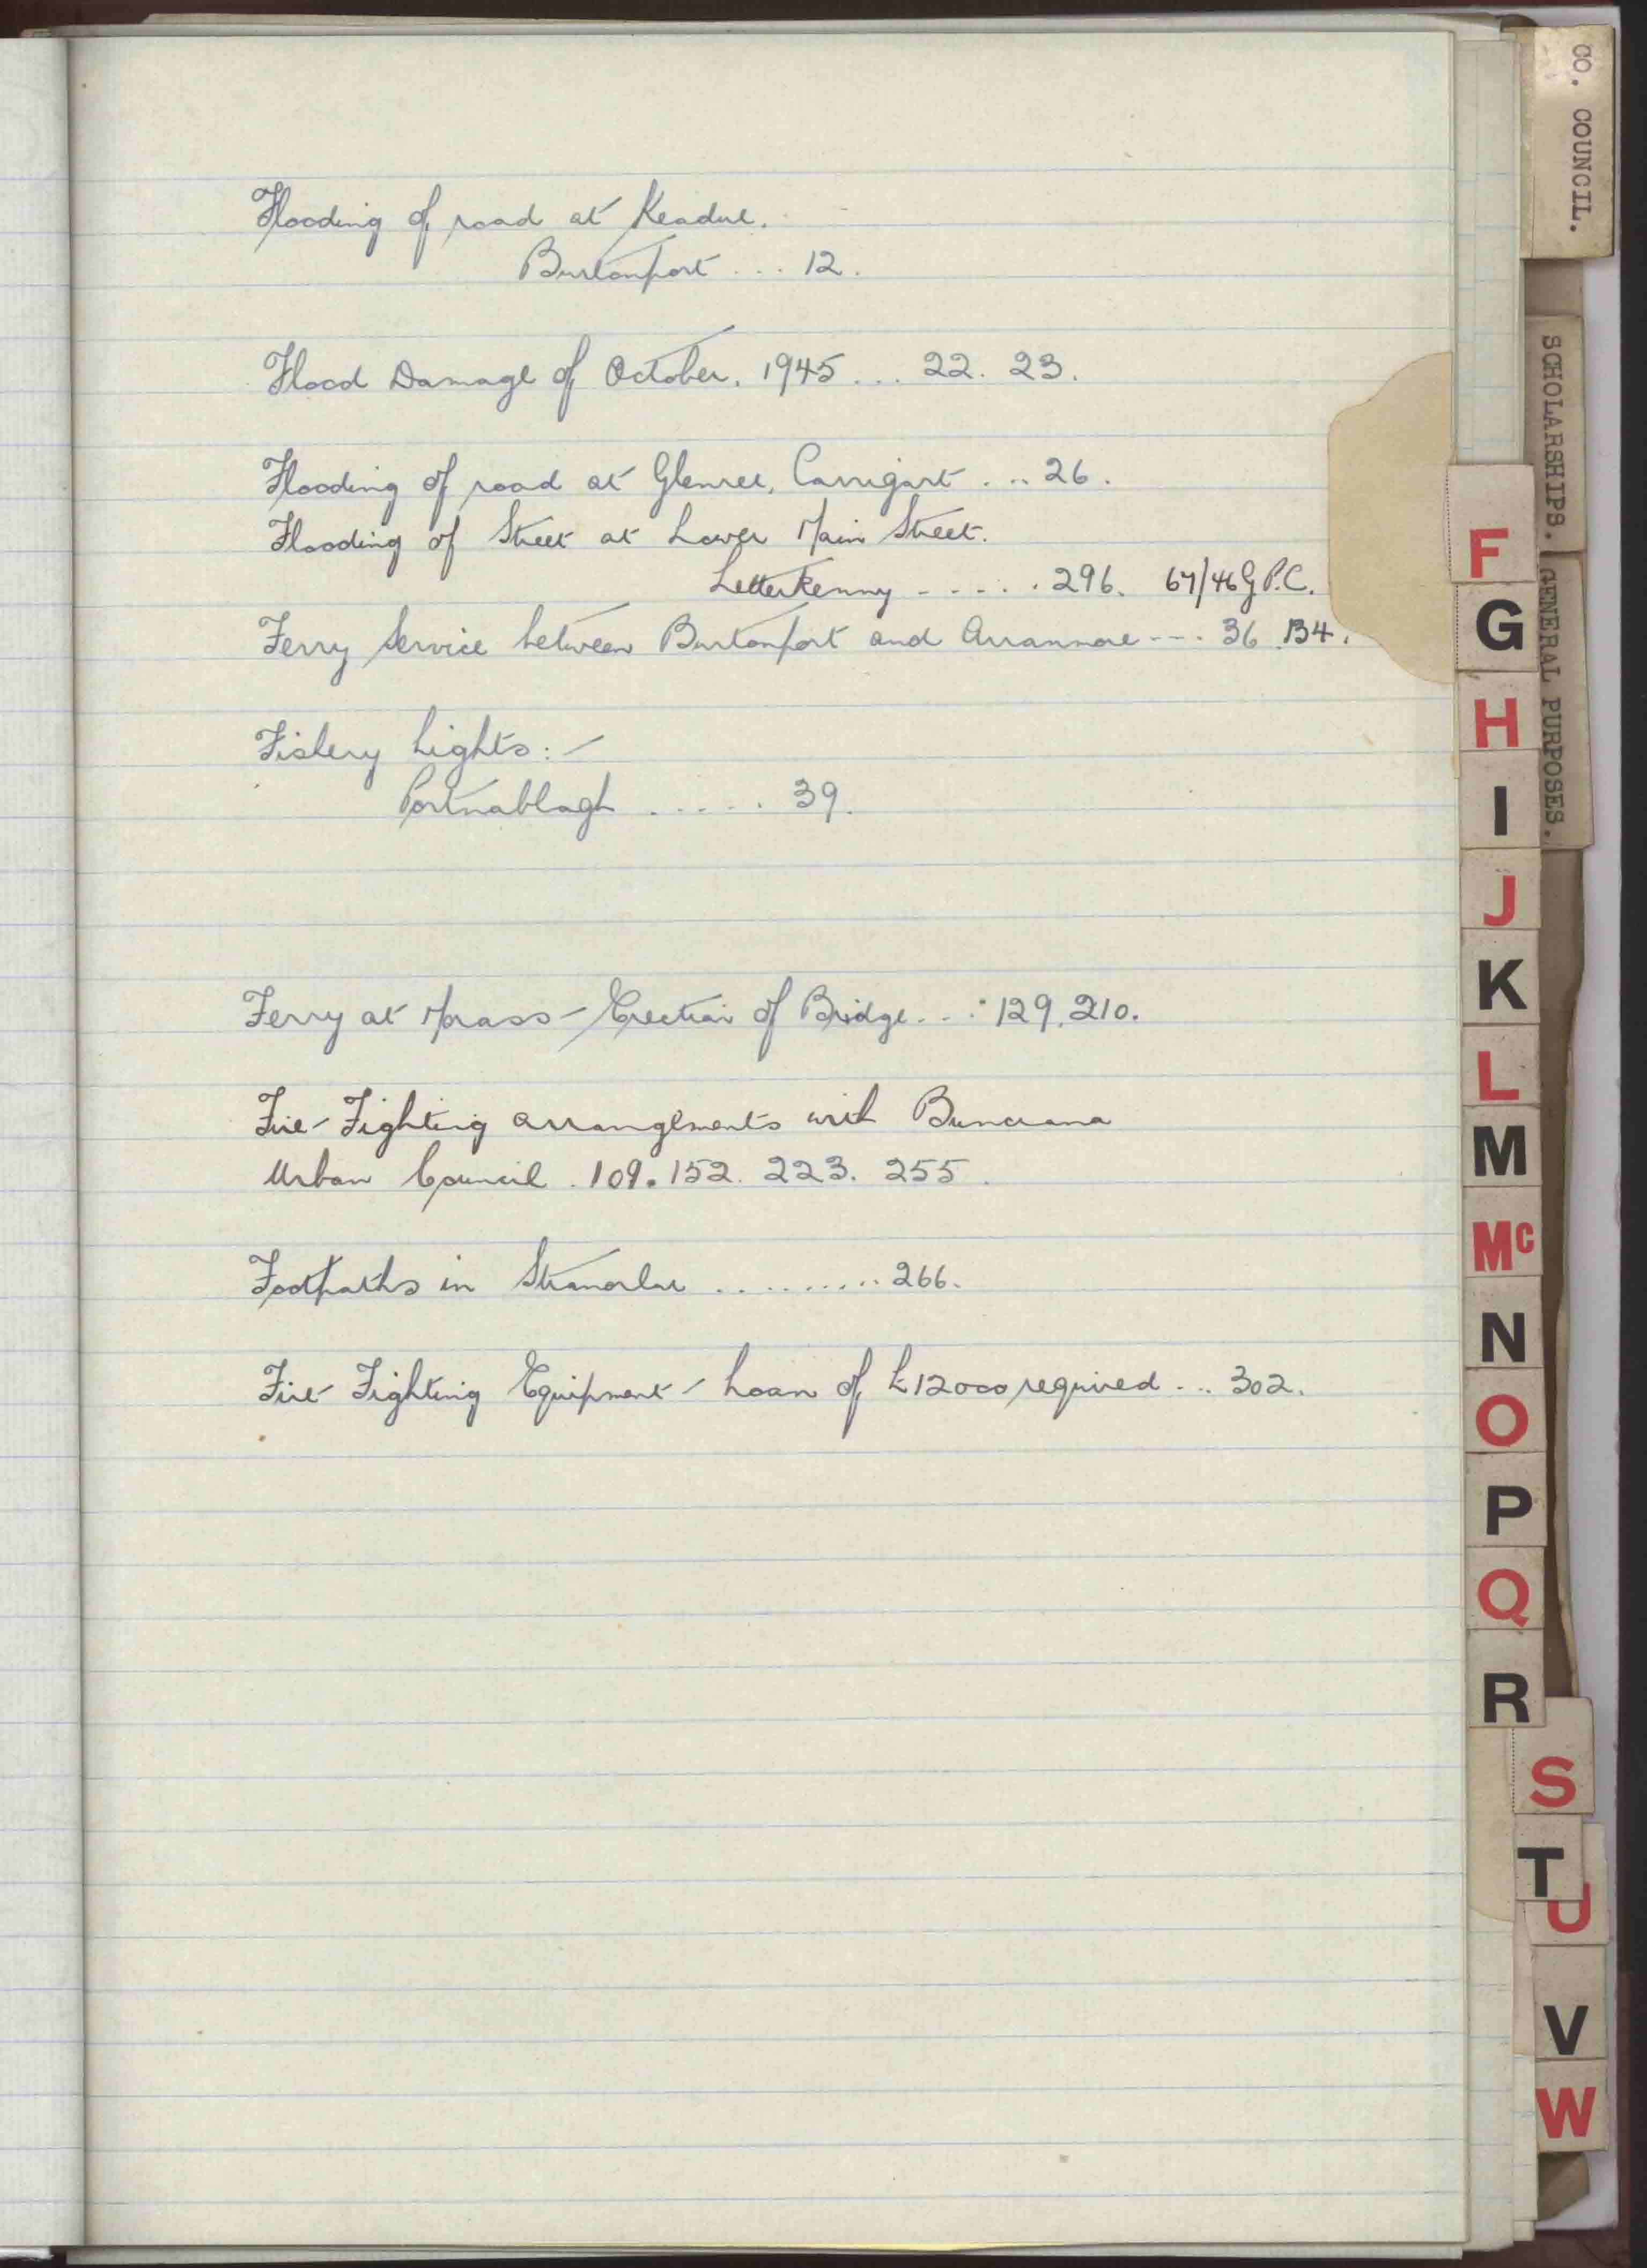 Flooding of road at Keadue.
Burtonport ... 12.
Flood Damage of October, 1945 ... 22. 23.
Flooding of road at Glenree, Carrigart ... 26.
Flooding of Street at Lower Main Street.
Letterkenny - - - - . 296. 67/46 G.P.C.
Ferry Service between Burtonport and Arranmore --- 36. 134.
Fishery Lights:-
Portnablagh ..... 39.
Ferry at Mrass - Erection of Bridge ... 129, 210.
Fire-Fighting arrangements with Buncrana
Urban Council . 109. 152. 223. 255.
Footpaths in Stranorlar .......... 266.
Fire Fighting Equipment - Loan of £12000 required ... 302.
CO. COUNCIL.
SCHOLARSHIPS.
GENERAL PURPOSES.
F
G
H
I
J
K
L
M
Mc
N
O
P
Q
R
S
T
U
V
W